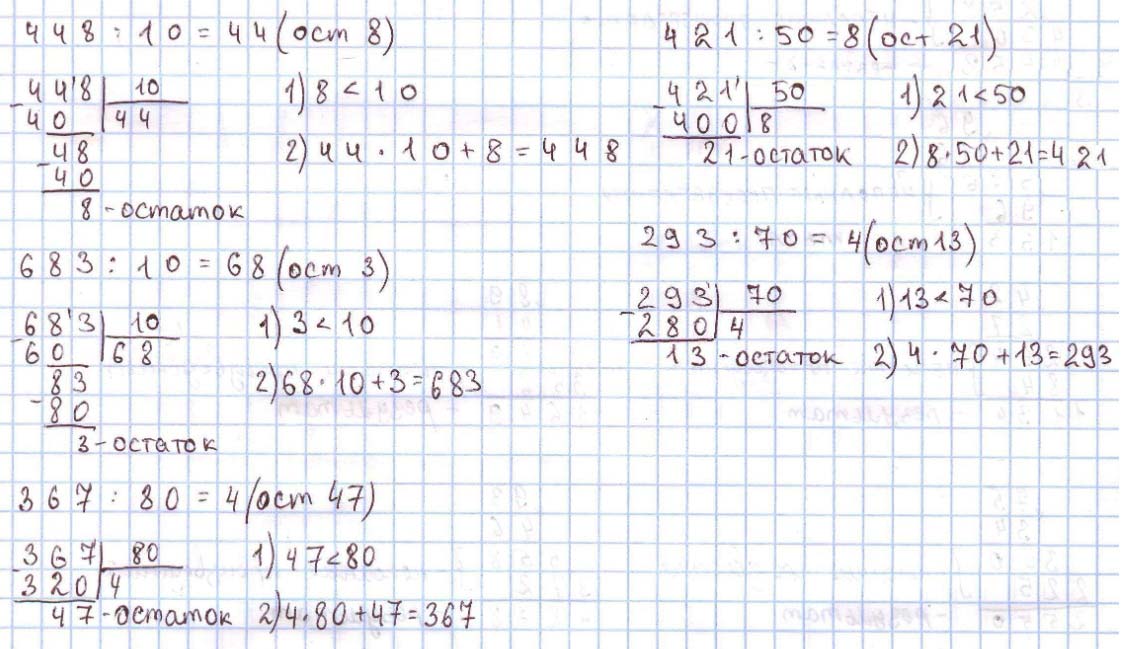 448 : 10 = 44 (ост 8)
448 | 10
40 | 44
48
40
8 - остаток
1) 8 < 10
2) 44 · 10 + 8 = 448
683 : 10 = 68 (ост 3)
683 | 10
60 | 68
83
80
3 - остаток
1) 3 < 10
2) 68 · 10 + 3 = 683
367 : 80 = 4 (ост 47)
367 | 80
320 | 4
47 - остаток
1) 47 < 80
2) 4 · 80 + 47 = 367
421 : 50 = 8 (ост. 21)
421 | 50
400 | 8
21 - остаток
1) 21 < 50
2) 8 · 50 + 21 = 421
293 : 70 = 4 (ост 13)
293 | 70
280 | 4
13 - остаток
1) 13 < 70
2) 4 · 70 + 13 = 293